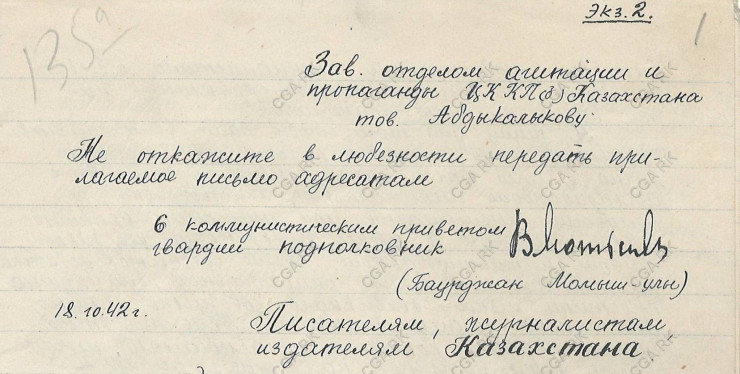 Экз. 2.
1
135а
Зав. отделом агитации и
пропаганды ЦК КП(б) Казахстана
тов. Абдыкалыкову.
Не откажите в любезности передать при-
лагаемое письмо адресатам
С коммунистическим приветом
гвардии подполковник
(Баурджан Момыш-улы)
18.10.42 г.
Писателям, журналистам
издателям Казахстана
CGA RK